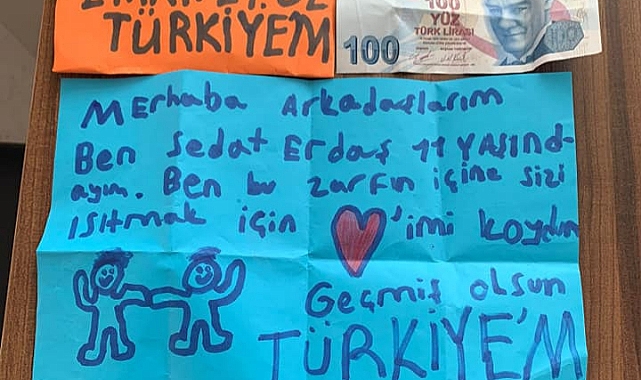 TÜRKİYEM
100
YÜZ
TÜRK LİRASI
100
Merhaba Arkadaşlarım
Ben Sedat Erdaş 11 YAŞınd-
ayım. Ben bu zarfın içine sizi
ısıtmak için 'imi koydum
Geçmiş olsun
TÜRKİYE'M